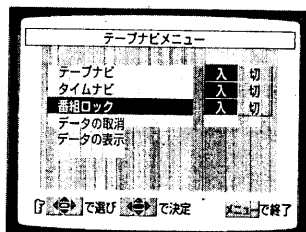 テープナビメニュー
テープナビ 入 切
タイムナビ 入 切
番組ロック 入 切
データの取消
データの表示
で選び で決定 メニューで終了